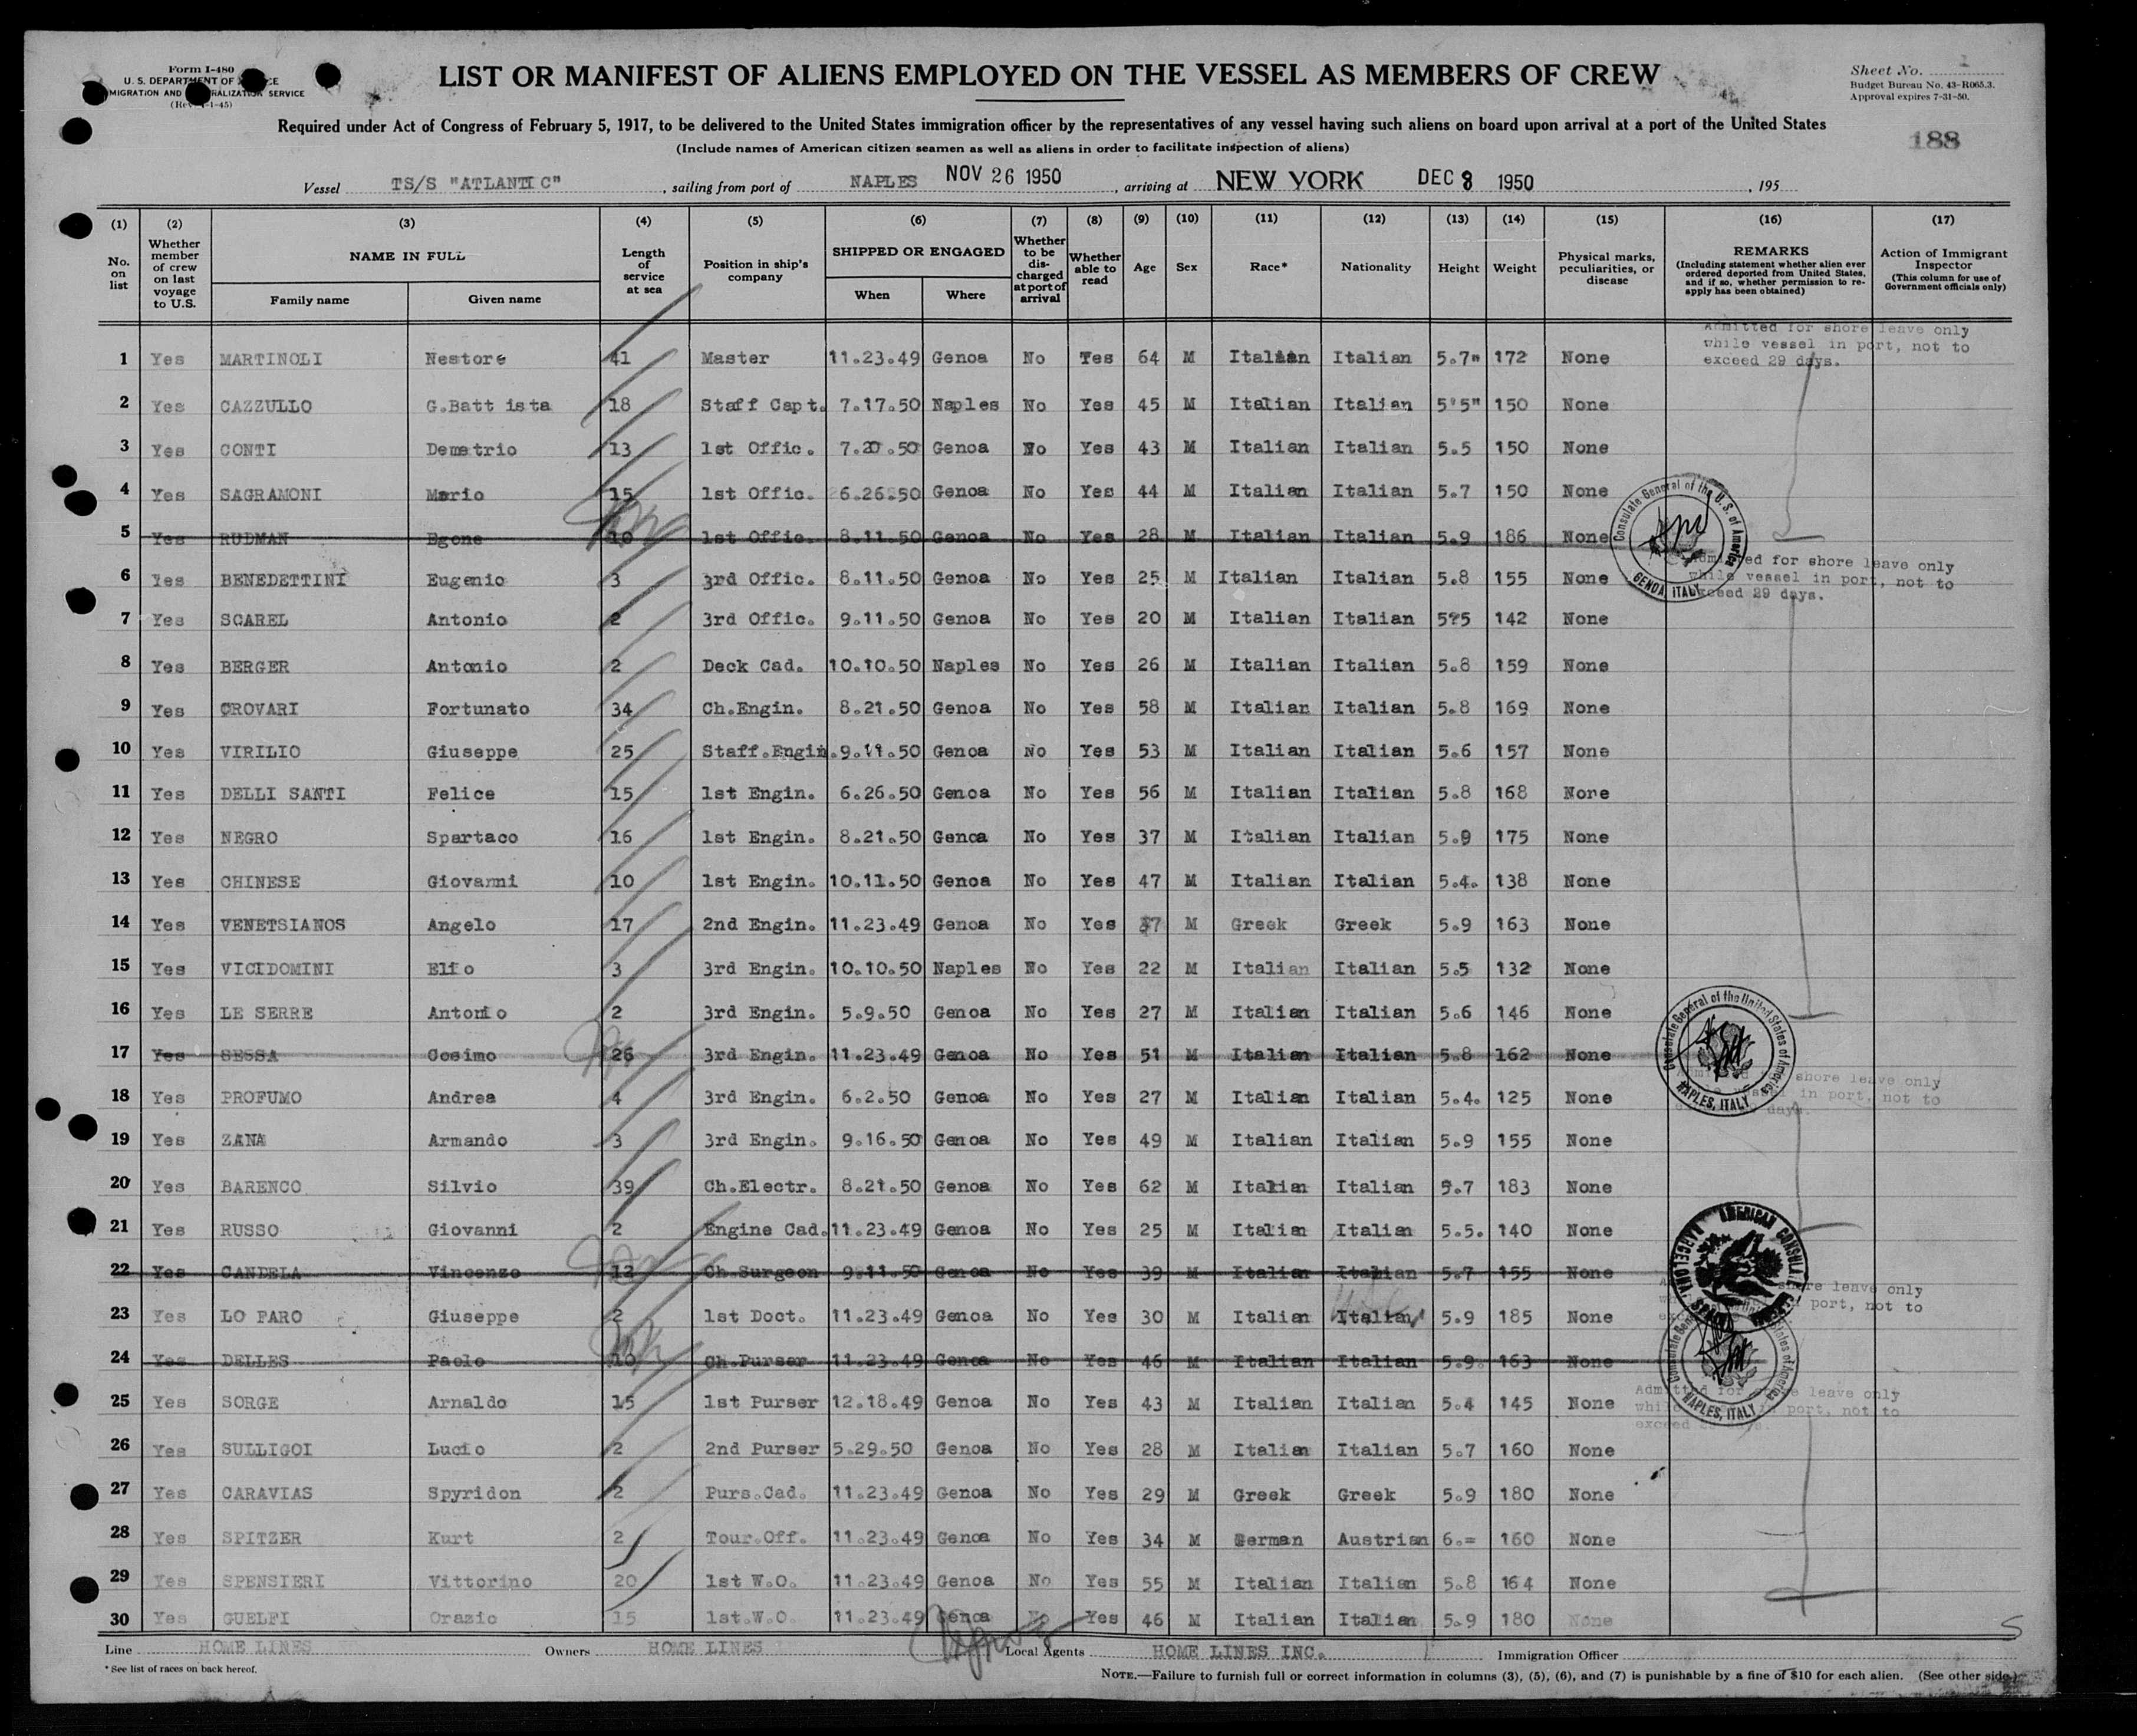 Form I-480
U. S. DEPARTMENT OF
MIGRATION AND SERVICE
(Rev. -1-45)
LIST OR MANIFEST OF ALIENS EMPLOYED ON THE VESSEL AS MEMBERS OF CREW
Sheet No. 1
Budget Bureau No. 43-R065.3.
Approval expires 7-31-50.
Required under Act of Congress of February 5, 1917, to be delivered to the United States immigration officer by the representatives of any vessel having such aliens on board upon arrival at a port of the United States
(Include names of American citizen seamen as well as aliens in order to facilitate inspection of aliens)
188
Vessel TS/S "ATLANTIC", sailing from port of NAPLES NOV 26 1950, arriving at NEW YORK DEC 8 1950, 195
(1) (2) (3) (4) (5) (6) (7) (8) (9) (10) (11) (12) (13) (14) (15) (16) (17)
No. on list
Whether member of crew on last voyage to U.S.
NAME IN FULL
Family name
Given name
Length of service at sea
Position in ship's company
SHIPPED OR ENGAGED
When
Where
Whether to be discharged at port of arrival
Whether able to read
Age
Sex
Race*
Nationality
Height
Weight
Physical marks, peculiarities, or disease
REMARKS
(Including statement whether alien ever ordered deported from United States, and if so, whether permission to re-apply has been obtained)
Action of Immigrant Inspector
(This column for use of Government officials only)
Admitted for shore leave only
while vessel in port, not to
exceed 29 days.
1 Yes MARTINOLI Nestore 41 Master 11.23.49 Genoa No Yes 64 M Italian Italian 5.7" 172 None
2 Yes CAZZULLO G.Battista 18 Staff Capt. 7.17.50 Naples No Yes 45 M Italian Italian 5'5" 150 None
3 Yes CONTI Demetrio 13 1st Offic. 7.20.50 Genoa No Yes 43 M Italian Italian 5.5 150 None
4 Yes SAGRAMONI Mario 15 1st Offic. 6.26.50 Genoa No Yes 44 M Italian Italian 5.7 150 None
5 Yes RUDMAN Egone 10 1st Offic. 8.11.50 Genoa No Yes 28 M Italian Italian 5.9 186 None
Consulate General of the U. S. of America
GENOA, ITALY
Admitted for shore leave only
while vessel in port, not to
exceed 29 days.
6 Yes BENEDETTINI Eugenio 3 3rd Offic. 8.11.50 Genoa No Yes 25 M Italian Italian 5.8 155 None
7 Yes SCAREL Antonio 2 3rd Offic. 9.11.50 Genoa No Yes 20 M Italian Italian 5?5 142 None
8 Yes BERGER Antonio 2 Deck Cad. 10.10.50 Naples No Yes 26 M Italian Italian 5.8 159 None
9 Yes CROVARI Fortunato 34 Ch.Engin. 8.21.50 Genoa No Yes 58 M Italian Italian 5.8 169 None
10 Yes VIRILIO Giuseppe 25 Staff.Engin. 9.11.50 Genoa No Yes 53 M Italian Italian 5.6 157 None
11 Yes DELLI SANTI Felice 15 1st Engin. 6.26.50 Genoa No Yes 56 M Italian Italian 5.8 168 None
12 Yes NEGRO Spartaco 16 1st Engin. 8.21.50 Genoa No Yes 37 M Italian Italian 5.9 175 None
13 Yes CHINESE Giovanni 10 1st Engin. 10.11.50 Genoa No Yes 47 M Italian Italian 5.4. 138 None
14 Yes VENETSIANOS Angelo 17 2nd Engin. 11.23.49 Genoa No Yes 37 M Greek Greek 5.9 163 None
15 Yes VICIDOMINI Elio 3 3rd Engin. 10.10.50 Naples No Yes 22 M Italian Italian 5.5 132 None
16 Yes LE SERRE Antonio 2 3rd Engin. 5.9.50 Genoa No Yes 27 M Italian Italian 5.6 146 None
17 Yes SESSA Cosimo 26 3rd Engin. 11.23.49 Genoa No Yes 51 M Italian Italian 5.8 162 None
Consulate General of the United States of America
NAPLES, ITALY
shore leave only
in port, not to
days.
18 Yes PROFUMO Andrea 4 3rd Engin. 6.2.50 Genoa No Yes 27 M Italian Italian 5.4. 125 None
19 Yes ZANA Armando 3 3rd Engin. 9.16.50 Genoa No Yes 49 M Italian Italian 5.9 155 None
20 Yes BARENCO Silvio 39 Ch.Electr. 8.21.50 Genoa No Yes 62 M Italian Italian 5.7 183 None
21 Yes RUSSO Giovanni 2 Engine Cad. 11.23.49 Genoa No Yes 25 M Italian Italian 5.5. 140 None
22 Yes CANDELA Vincenzo 12 Ch.Surgeon 9.11.50 Genoa No Yes 39 M Italian Italian 5.7 155 None
AMERICAN CONSULATE GENERAL
BARCELONA, SPAIN
leave only
port, not to
23 Yes LO FARO Giuseppe 2 1st Doct. 11.23.49 Genoa No Yes 30 M Italian Italian 5.9 185 None
24 Yes DELLES Paolo 10 Ch.Purser 11.23.49 Genoa No Yes 46 M Italian Italian 5.9. 163 None
Consulate General States of America
NAPLES, ITALY
Admitted for leave only
while port, not to
exceed
25 Yes SORGE Arnaldo 15 1st Purser 12.18.49 Genoa No Yes 43 M Italian Italian 5.4 145 None
26 Yes SULLIGOI Lucio 2 2nd Purser 5.29.50 Genoa No Yes 28 M Italian Italian 5.7 160 None
27 Yes CARAVIAS Spyridon 2 Purs.Cad. 11.23.49 Genoa No Yes 29 M Greek Greek 5.9 180 None
28 Yes SPITZER Kurt 2 Tour.Off. 11.23.49 Genoa No Yes 34 M German Austrian 6.= 160 None
29 Yes SPENSIERI Vittorino 20 1st W.O. 11.23.49 Genoa No Yes 55 M Italian Italian 5.8 164 None
30 Yes GUELFI Orazio 15 1st.W.O. 11.23.49 Genoa No Yes 46 M Italian Italian 5.9 180 None
Line HOME LINES Owners HOME LINES Local Agents HOME LINES INC. Immigration Officer
* See list of races on back hereof.
NOTE.—Failure to furnish full or correct information in columns (3), (5), (6), and (7) is punishable by a fine of $10 for each alien. (See other side.)